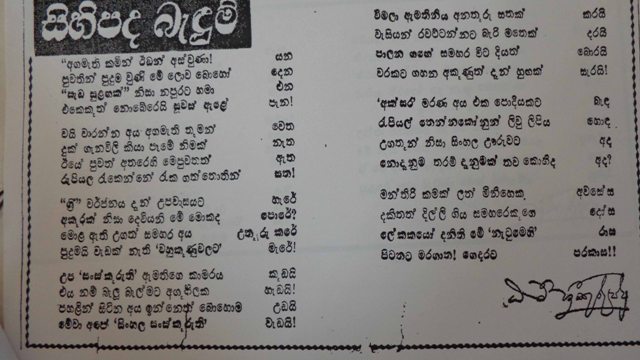 සිහිපද බැඳුම්
"අගමැති කමින් රඩන් අස්වුණා! යන
පුවතින් පුදුම වුණි මේ ලොව බොහෝ දෙන
"සැඩ සුළඟක්" නිසා නපුරට හමා එන
එකෙකුත් නොබේරෙයි සුවස් ඇළේ පැන!
වයි වාරන්න අය අගමැති තුමන් වෙත
දුක් ගැනවිලි කියා පැමිණීමක් නැත
ඊයේ පුවත් අතරෙහි මෙපුවතත් ඇත
රුපියල රැකෙන්නේ රැක ගත්තොතින් සත!
"ශ්‍රී" වර්ජනය දැන් උපවාසයට හැරේ
අකුරක් නිසා දෙවියනි මේ මොකද පොරේ?
මොළ ඇති උගත් සමහර අය උතුරු කරේ
පුදුමයි වැඩක් නැති 'වහුකුණුවලට' මැරේ!
උප 'සංස්කෘති' ඇමතිගෙ කාමරය කුඩයි
එය නම් බැලූ බැල්මට අගුපිලක හැඩයි!
පහළින් සිටින අය ඉන්නෙත් බොහොම උඩයි
මේවා අපේ 'සිංහල සංස්කෘති' වැඩයි!
විමලා ඇමතිනිය අනතුරු සතක් කරයි
වැසියන් රවටන්නට බැරි මතෙක් දරයි
පාලන ගැන සමහර විට දියත් බොරයි
වරකට ගහන අකුණුත් දැන් හුඟක් සැරයි!
'අක්සර' මරණ අය එක පොදියකට බැඳ
රැපියල් තෙන්නකෝනුන් ලිවු ලිපිය හොඳ
උගතුන් නිසා සිංහල උරුවට අද
නොදැනුම තරම් දැනුමක් තව කොහිද අද?
මන්ත්‍රි කමක් ලත් මිනිහෙකු අවසේස
දකිතත් දිල්ලි ගිය සමහරෙකුගෙ දෝස
ලේකකයෝ දනිති මේ "නැටුමෙහි" රාස
පිටතට මරගාත! ගෙදරට පරකාස!!